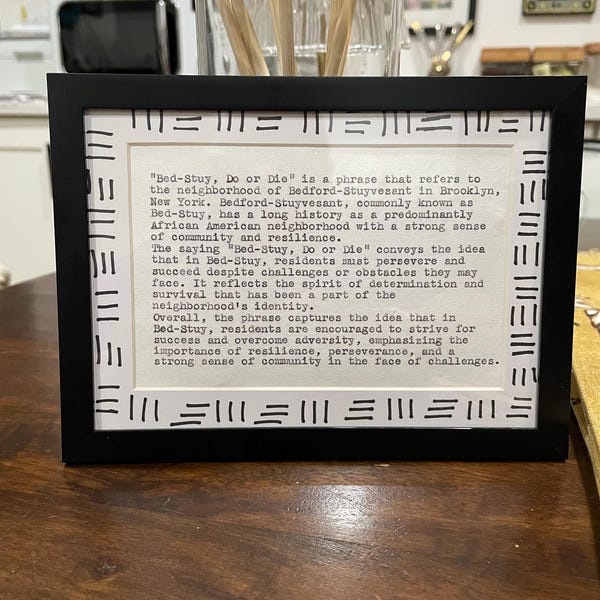 "Bed-Stuy, Do or Die" is a phrase that refers to
the neighborhood of Bedford-Stuyvesant in Brooklyn,
New York. Bedford-Stuyvesant, commonly known as
Bed-Stuy, has a long history as a predominantly
African American neighborhood with a strong sense
of community and resilience.
The saying "Bed-Stuy, Do or Die" conveys the idea
that in Bed-Stuy, residents must persevere and
succeed despite challenges or obstacles they may
face. It reflects the spirit of determination and
survival that has been a part of the
neighborhood's identity.
Overall, the phrase captures the idea that in
Bed-Stuy, residents are encouraged to strive for
success and overcome adversity, emphasizing the
importance of resilience, perseverance, and a
strong sense of community in the face of challenges.